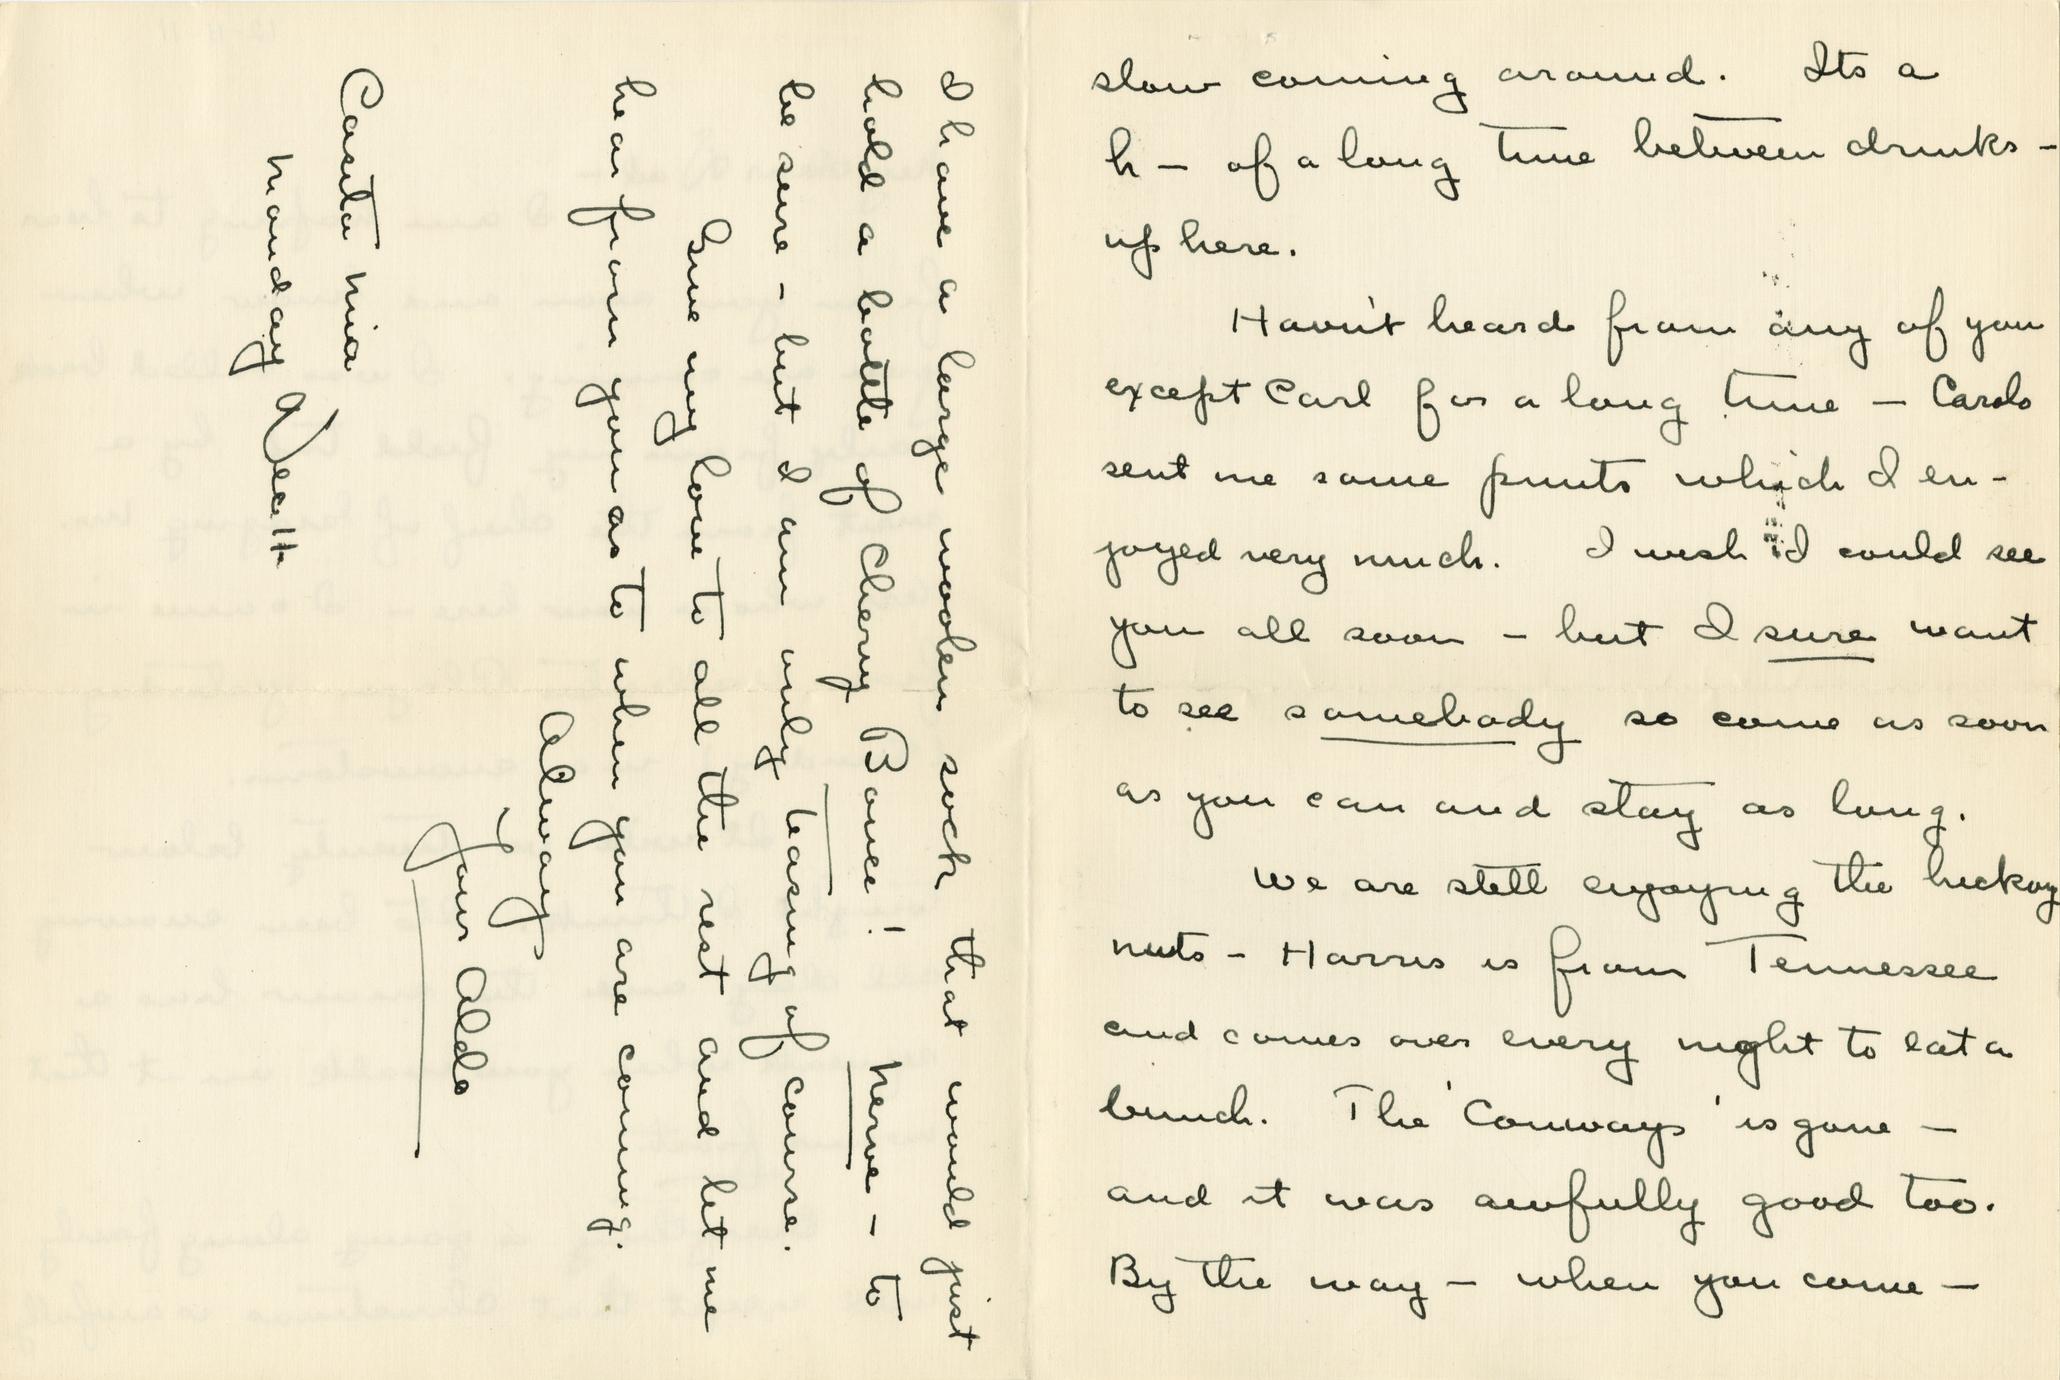 slow coming around. Its a
h— of a long time between drinks —
up here.
Havn't heard from any of you
except Carl for a long time — Carlo
sent me some prints which I en-
joyed very much. I wish I could see
you all soon — but I sure want
to see somebody so come as soon
as you can and stay as long.
We are still enjoying the hickory
nuts — Harris is from Tennessee
and comes over every night to eat a
bunch. The 'Conways' is gone —
and it was awfully good too.
By the way — when you come —
I have a large woolen sock that would just
hold a bottle of Cherry Bounce! Nerve — to
be sure — but I am only teasing of course.
Give my love to all the rest and let me
hear from you as to when you are coming.
Alway
Your Aldo
Casita mia
Monday Dec 11